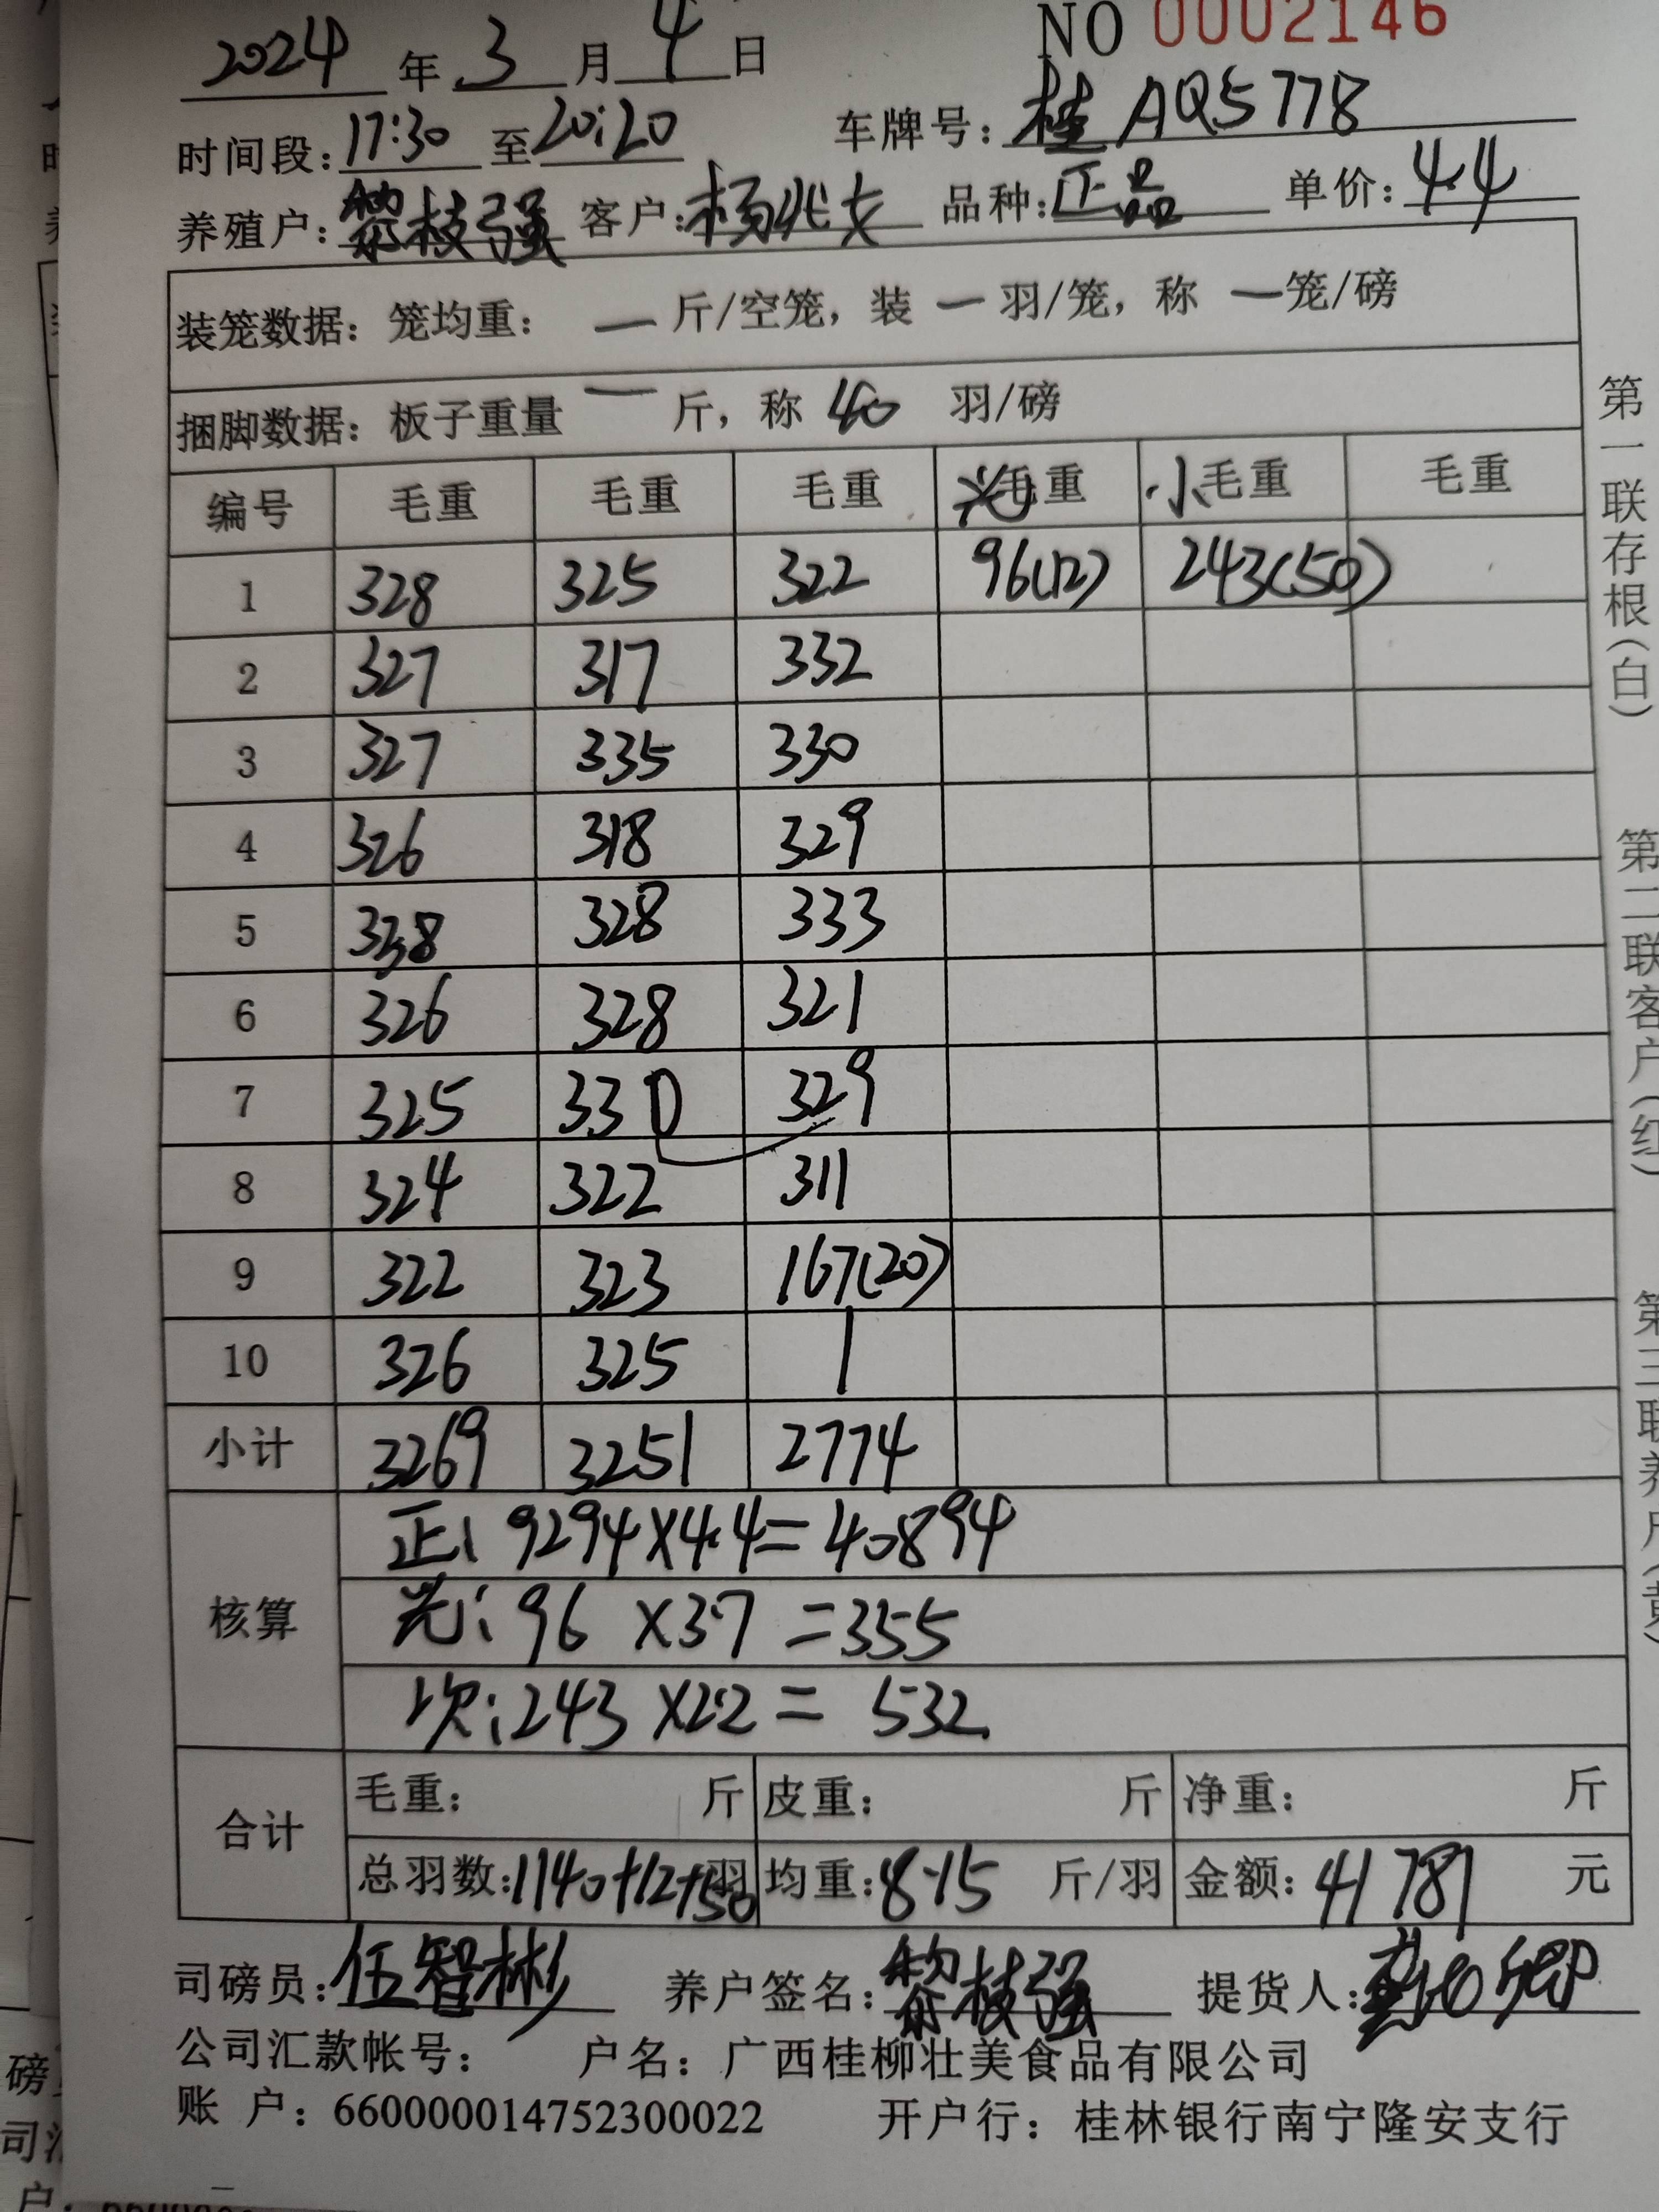 2024 年 3 月 4 日 NO 0002146
时间段: 17:30 至 20:20 车牌号: 桂 AQ5778
养殖户: 黎枝强 客户: 杨兆 品种: 正品 单价: 4.4
装笼数据: 笼均重: — 斤/空笼, 装 — 羽/笼, 称 — 笼/磅
捆脚数据: 板子重量 — 斤, 称 40 羽/磅
编号 毛重 毛重 毛重 光毛重 小毛重 毛重
1 328 325 322 96(12) 243(50)
2 327 317 332
3 327 335 330
4 326 318 329
5 338 328 333
6 326 328 321
7 325 330 329
8 324 322 311
9 322 323 167(20)
10 326 325
小计 3269 3251 2774
核算
正: 9294×4.4=40894
光: 96 ×3.7 =355
次: 243 ×2.2 = 532
合计
毛重: 斤 皮重: 斤 净重: 斤
总羽数: 1140+12+50 羽 均重: 8.15 斤/羽 金额: 41781 元
司磅员: 伍智彬 养户签名: 黎枝强 提货人:
公司汇款帐号: 户名: 广西桂柳壮美食品有限公司
账 户: 660000014752300022 开户行: 桂林银行南宁隆安支行
第一联存根(白)
第二联客户(红)
第三联养户(黄)